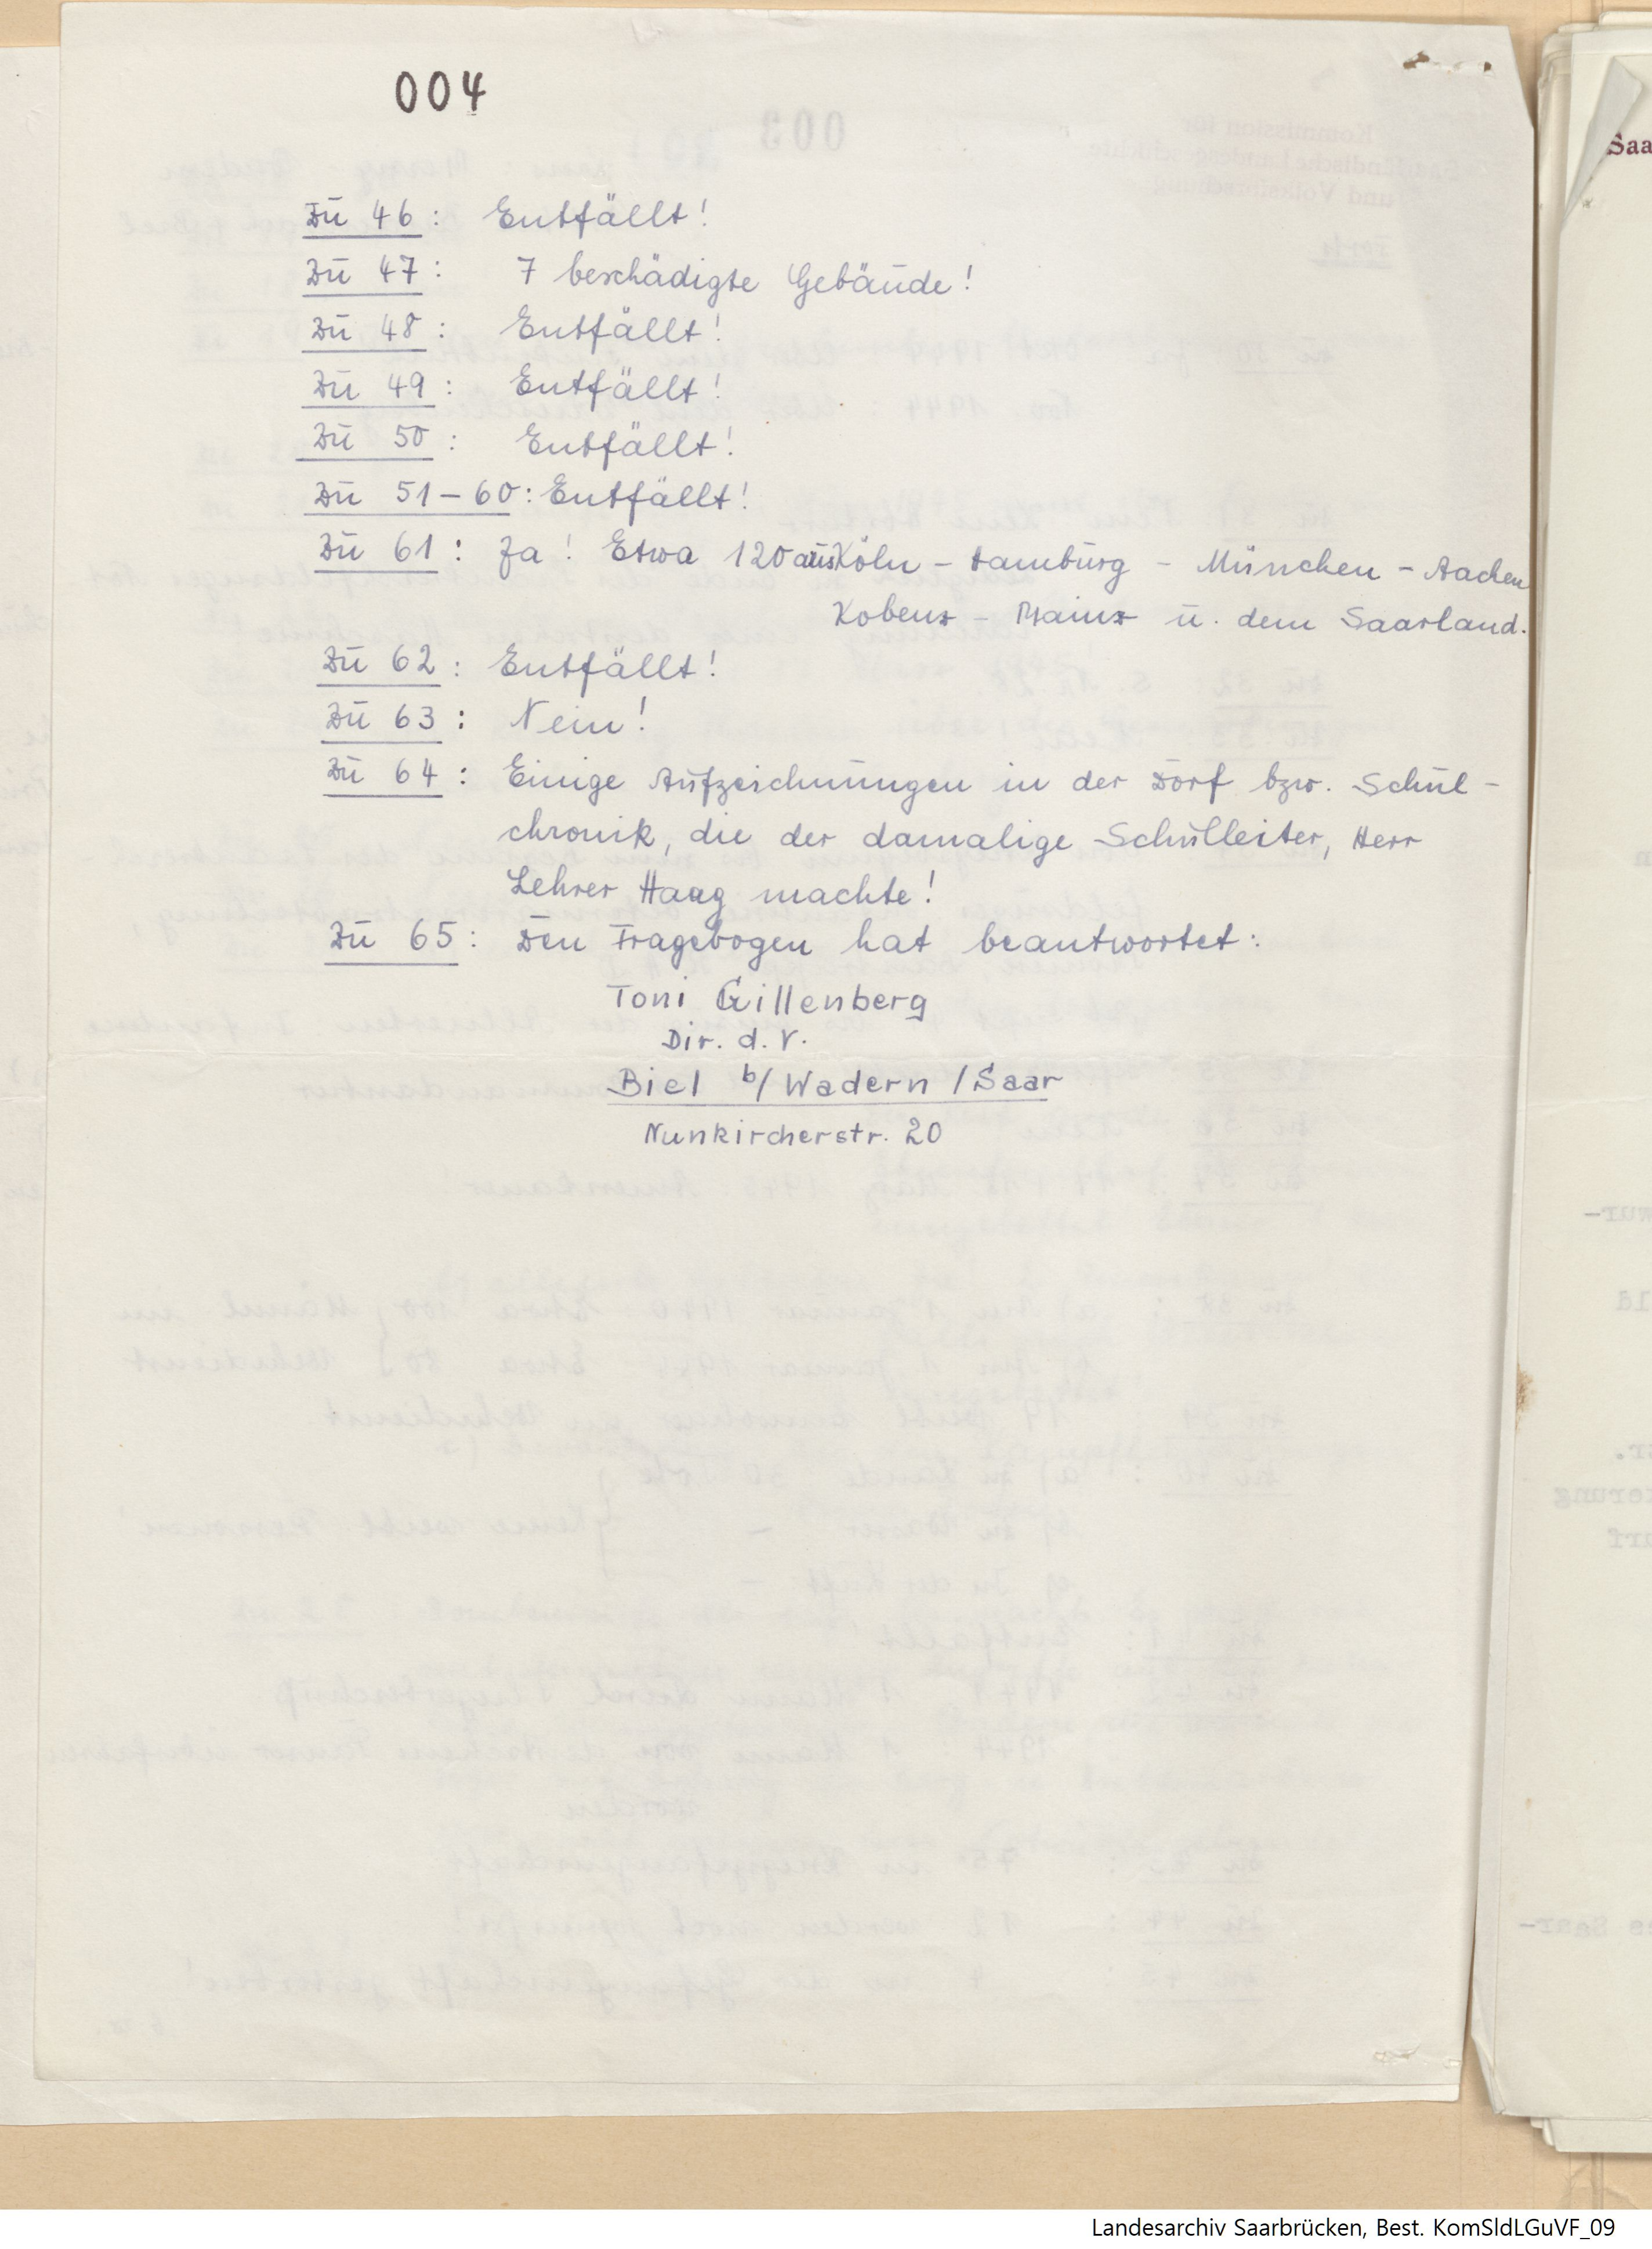 004
Zu 46: Entfällt!
Zu 47: 7 beschädigte Gebäude!
Zu 48: Entfällt!
Zu 49: Entfällt!
Zu 50: Entfällt!
Zu 51–60: Entfällt!
Zu 61: Ja! Etwa 120 aus Köln – Hamburg – München – Aachen
Kobenz – Mainz u. dem Saarland.
Zu 62: Entfällt!
Zu 63: Nein!
Zu 64: Einige Aufzeichnungen in der Dorf bzw. Schul-
chronik, die der damalige Schulleiter, Herr
Lehrer Haag machte!
Zu 65: Den Fragebogen hat beantwortet:
Toni Gillenberg
Dir. d. V.
Biel b/Wadern/Saar
Nunkircherstr. 20
Saa
Landesarchiv Saarbrücken, Best. KomSldLGuVF_09